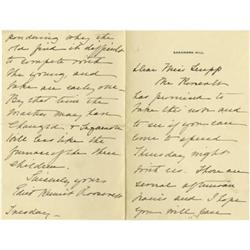 SAGAMORE HILL.
Dear Miss
Mr Roosevelt
has promised to
take this down and
to see if you can
come to spend
Thursday night
with us. There are
several afternoon
trains and I hope
you will
pondering why the
old find it difficult
to compete with
the young and
take an early one-
By that time the
weather may have
changed, & Sagamore
will less like the
furnace of the three
children.
Sincerely yours
Edith Kermit Roosevelt
Tuesday-